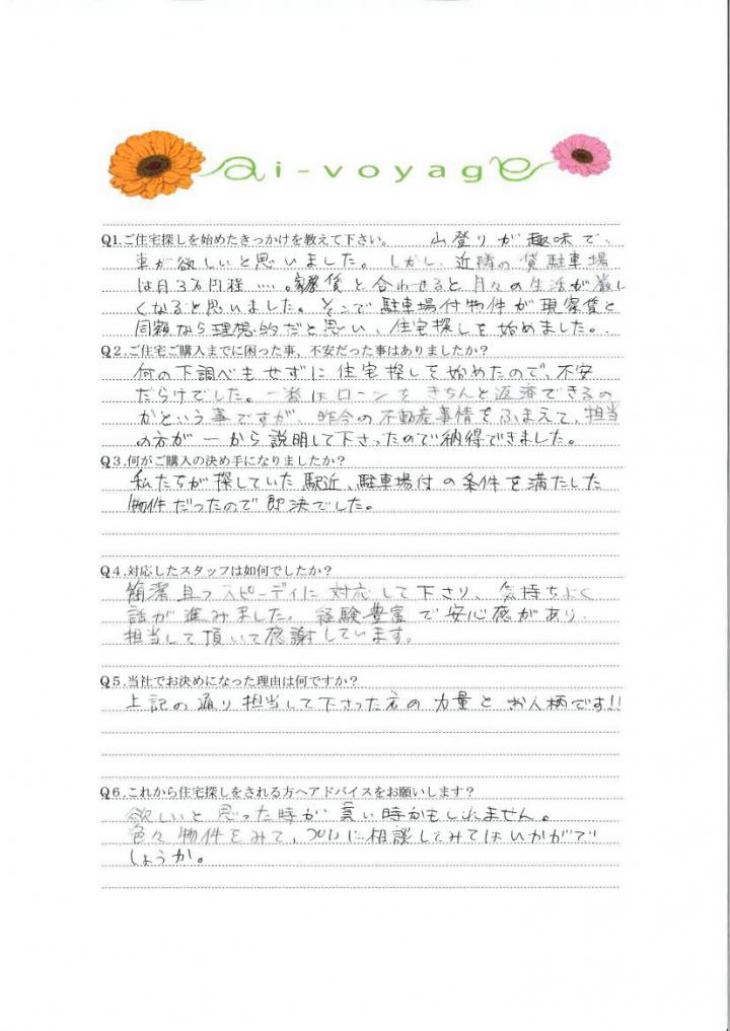 ai-voyage
Q1.ご住宅探しを始めたきっかけを教えて下さい。 山登りが趣味で、
車が欲しいと思いました。しかし、近隣の貸駐車場
は月3万円程…。家賃と合わせると月々の生活が厳し
くなると思いました。そこで駐車場付物件が現家賃と
同額なら理想的だと思い、住宅探しを始めました。
Q2.ご住宅ご購入までに困った事，不安だった事はありましたか？
何の下調べもせずに住宅探しを始めたので、不安
だらけでした。一番はローンをきちんと返済できるの
かという事ですが、昨今の不動産事情をふまえて、担当
の方が一から説明して下さったので納得できました。
Q3.何がご購入の決め手になりましたか？
私たちが探していた駅近、駐車場付の条件を満たした
物件だったので即決でした。
Q4.対応したスタッフは如何でしたか？
簡潔且つスピーディに対応して下さり、気持ちよく
話が進みました。経験豊富で安心感があり、
担当して頂いて感謝しています。
Q5.当社でお決めになった理由は何ですか？
上記の通り担当して下さった方の力量とお人柄です!!
Q6.これから住宅探しをされる方へアドバイスをお願いします？
欲しいと思った時が買い時かもしれません。
色々物件をみて、相談してみてはいかがで
しょうか。